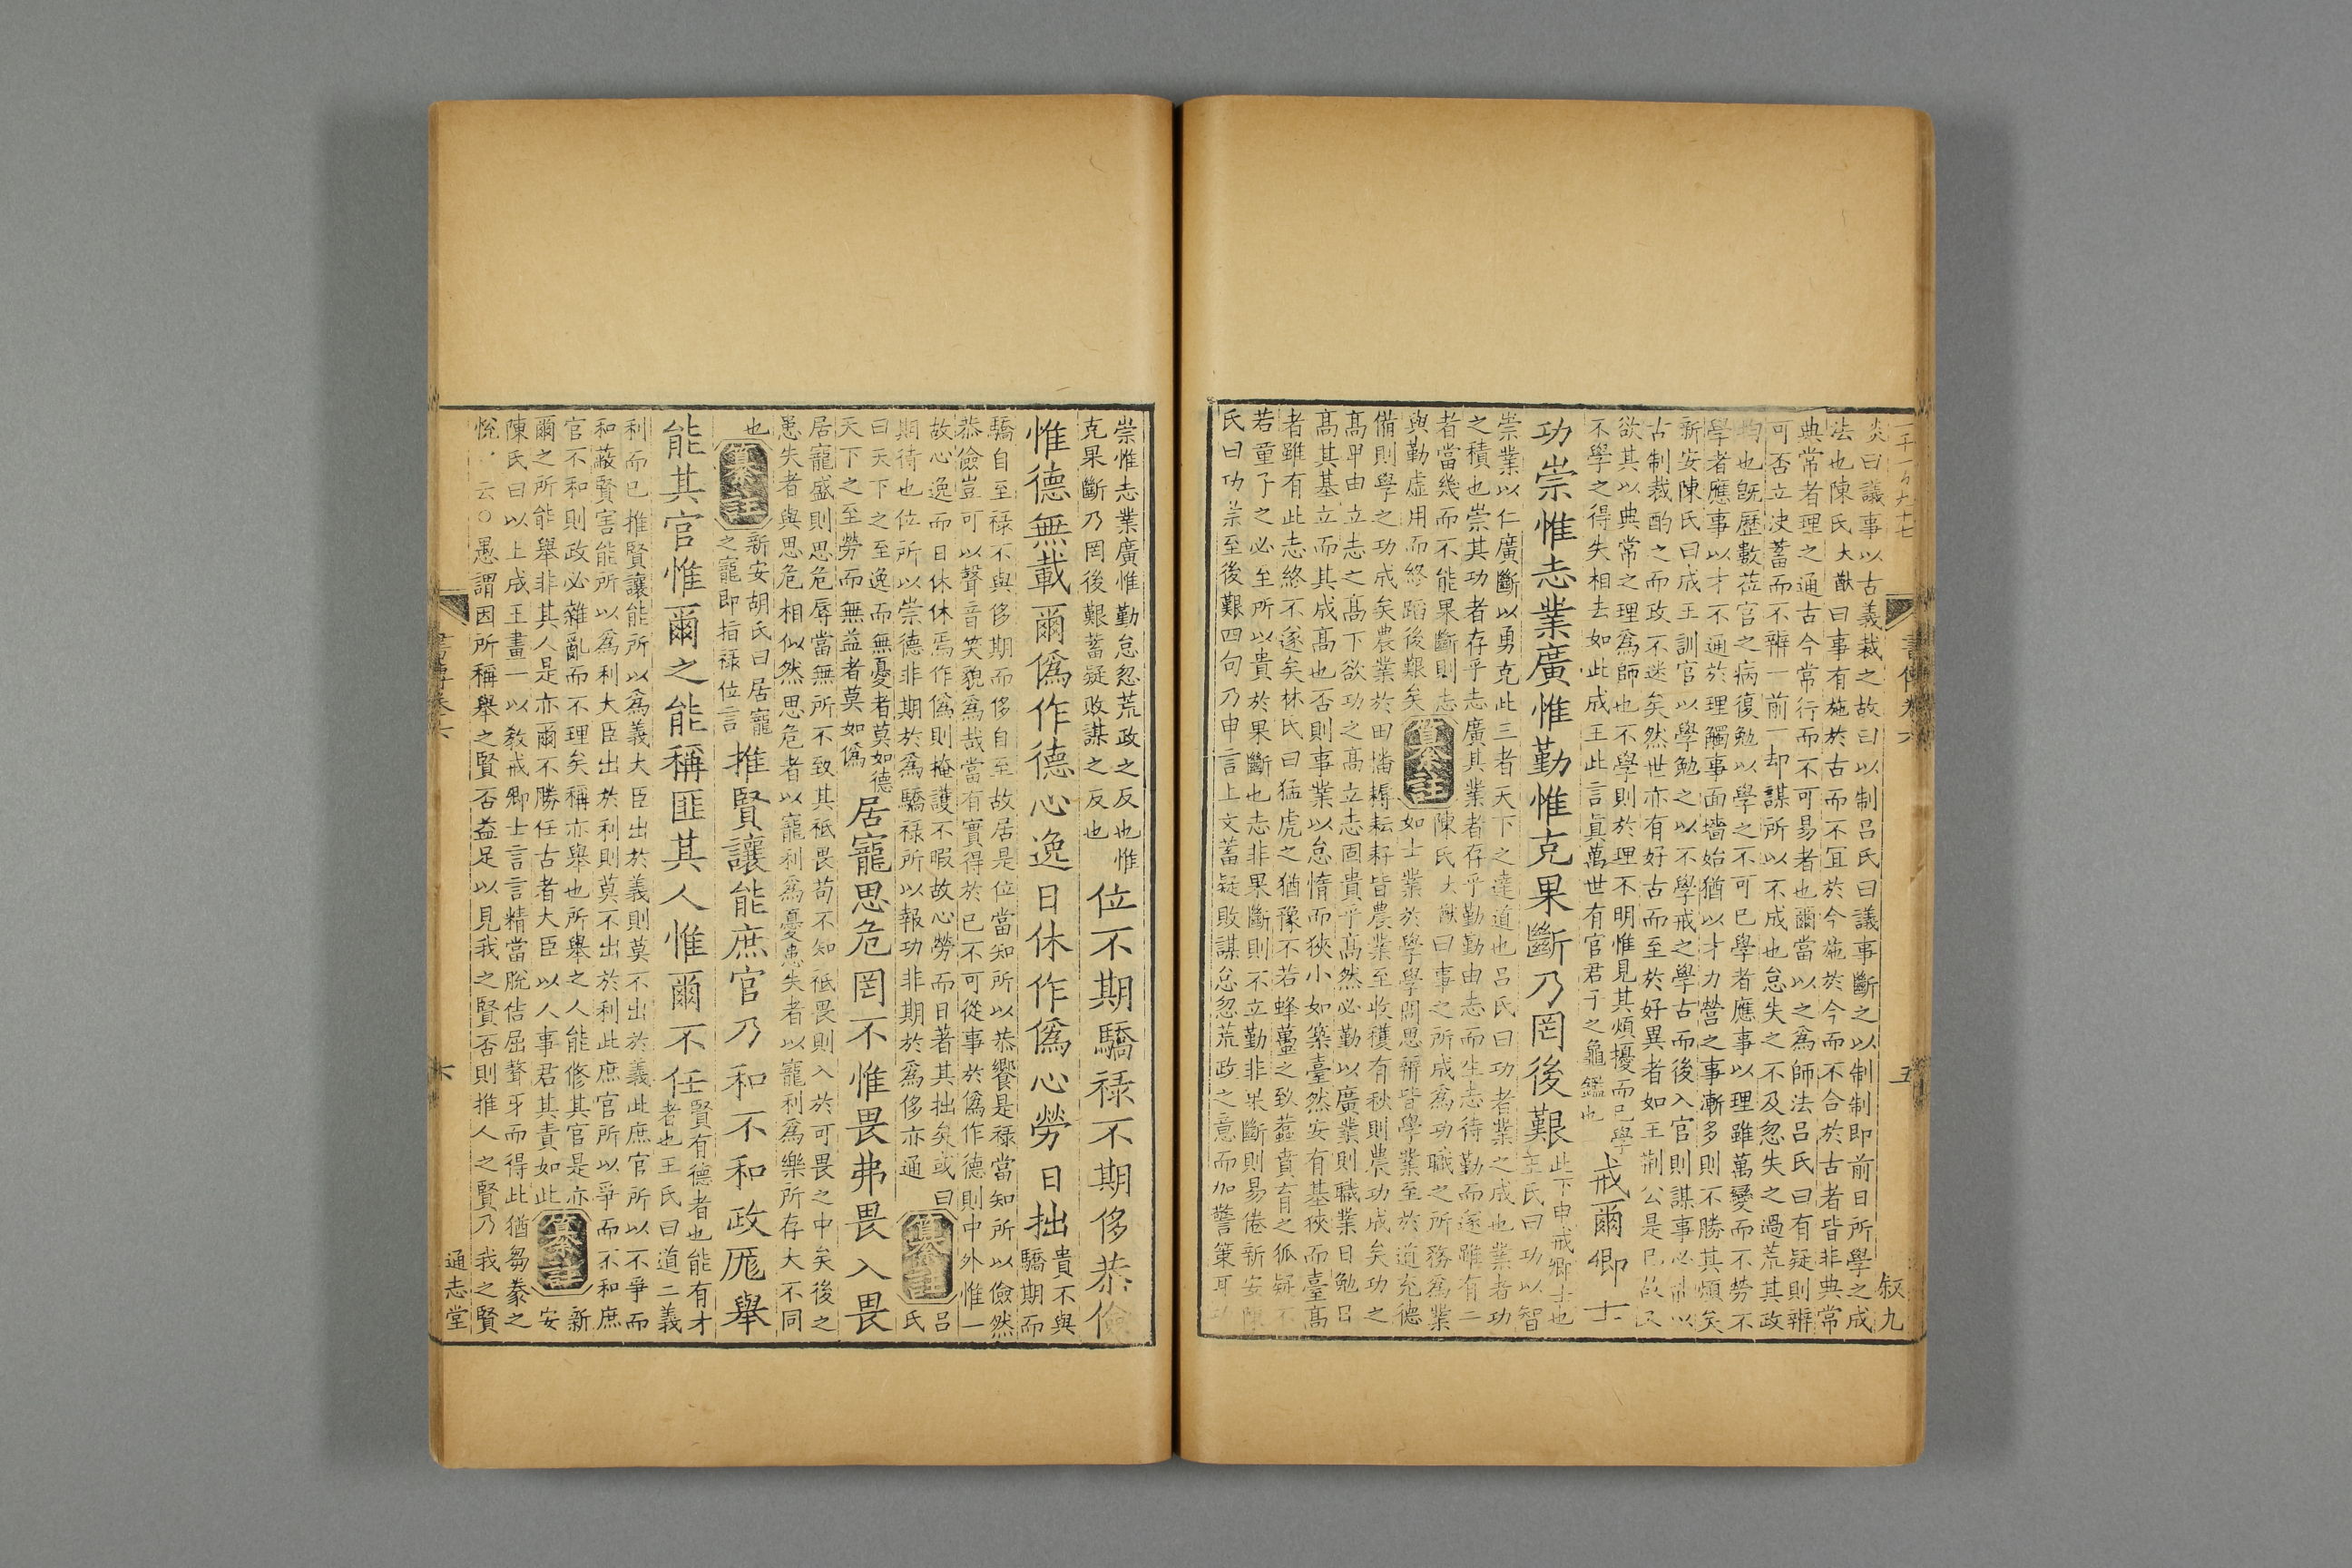 炎曰議事以古義裁之故曰以制呂氏曰議事斷之以制制即前日所學之成
法也陳氏大猷曰事有施於古而不宜於今施於今而不合於古者皆非典常
典常者理之通古今常行而不可易者也爾當以之為師法呂氏曰有疑則辨
可否立决蓄而不辨一前一却謀所以不成也怠失之不及忽失之過荒其政
均也旣歷數蒞官之病復勉以學之不可已學者應事以理雖萬變而不勞不
學者應事以才不通於理觸事面墻始猶以才力營之事漸多則不勝其煩矣
新安陳氏曰成王訓官以學勉之以不學戒之學古而後入官則謀事必能以
古制裁酌之而政不迷矣然世亦有好古而至於好異者如王荆公是已故又
欲其以典常之理爲師也不學則於理不明惟見其煩擾而已學
不學之得失相去如此成王此言眞萬世有官君子之龜鑑也
戒爾卿士
功崇惟志業廣惟勤惟克果斷乃罔後艱
此下申戒卿士也
王氏曰功以智
崇業以仁廣斷以勇克此三者天下之達道也呂氏曰功者業之成也業者功
之積也崇其功者存乎志廣其業者存乎勤勤由志而生志待勤而遂雖有二
者當幾而不能果斷則志
與勤虛用而終蹈後艱矣
纂註
陳氏大猷曰事之所成爲功職之所務爲業
如士業於學學問思辨皆學業至於道充德
備則學之功成矣農業於田墦耨耘耔皆農業至收穫有秋則農功成矣功之
髙卑由立志之髙下欲功之髙立志固貴乎髙然必勤以廣業則職業日勉日
髙其基立而其成髙也否則事業以怠惰而狹小如築臺然安有基狹而臺髙
者雖有此志終不遂矣林氏曰猛虎之猶豫不若蜂蠆之致螫賁育之狐疑不
若童子之必至所以貴於果斷也志非果斷則不立勤非果斷則易倦新安陳
氏曰功崇至後艱四句乃申言上文蓄疑敗謀怠忽荒政之意而加警策耳功
書傳卷六
五
叙九
崇惟志業廣惟勤怠忽荒政之反也惟
克果斷乃罔後艱蓄疑敗謀之反也
位不期驕祿不期侈恭儉
惟德無載爾僞作德心逸日休作僞心勞日拙
貴不與
驕期而
驕自至祿不與侈期而侈自至故居是位當知所以恭饗是祿當知所以儉然
恭儉豈可以聲音笑貌爲哉當有實得於已不可從事於僞作德則中外惟一
故心逸而日休休焉作僞則掩護不暇故心勞而日著其拙矣或曰
期待也位所以崇德非期於爲驕祿所以報功非期於爲侈亦通
纂註
呂
氏
曰天下之至逸而無憂者莫如德
天下之至勞而無益者莫如僞
居寵思危罔不惟畏弗畏入畏
居寵盛則思危辱當無所不致其祗畏苟不知祗畏則入於可畏之中矣後之
患失者與思危相似然思危者以寵利爲憂患失者以寵利爲樂所存大不同
也
纂註
新安胡氏曰居寵
之寵即指祿位言
推賢讓能庶官乃和不和政厖舉
能其官惟爾之能稱匪其人惟爾不任
賢有德者也能有才
者也王氏曰道二義
利而已推賢讓能所以爲義大臣出於義則莫不出於義此庶官所以不爭而
和蔽賢害能所以爲利大臣出於利則莫不出於利此庶官所以爭而不和庶
官不和則政必雜亂而不理矣稱亦舉也所舉之人能修其官是亦
爾之所能舉非其人是亦爾不勝任古者大臣以人事君其責如此
纂註
新
安
陳氏曰以上成王畫一以敎戒卿士言言精當脫佶屈聱牙而得此猶芻豢之
悅云○愚謂因所稱舉之賢否益足以見我之賢否則推人之賢乃我之賢
六
通志堂